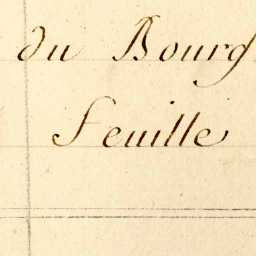 du Bourg
Feuille